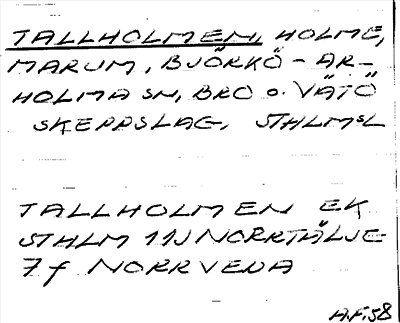 TALLHOLMEN, HOLME,
MARUM, BJÖRKÖ - AR-
HOLMA SN, BRO o. VÄTÖ
SKEPPSLAG, STHLMSL
TALLHOLMEN EK
STHLM 11J NORRTÄLJE
7f NORRVEDA
A.F. 58